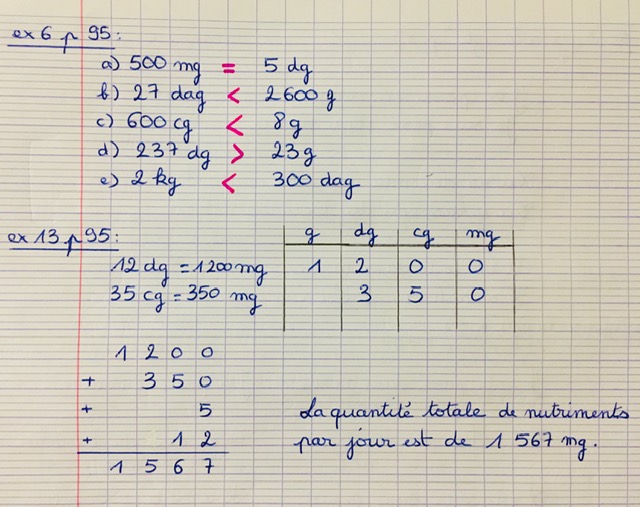 ex 6 p 95 :
a) 500 mg = 5 dg
b) 27 dag < 2600 g
c) 600 cg < 8 g
d) 237 dg > 23 g
e) 2 kg < 300 dag
ex 13 p 95 :
g dg cg mg
12 dg = 1200 mg 1 2 0 0
35 cg = 350 mg 3 5 0
1 2 0 0
+ 3 5 0
+ 5
+ 1 2
1 5 6 7
La quantité totale de nutriments
par jour est de 1 567 mg.